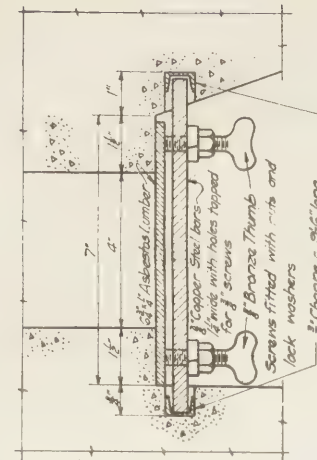 1"
1½"
7"
4"
1½"
Asbestos Lumber
Copper Steel bars
wide with holes tapped
for screws
Bronze Thumb
Screws fitted with nuts and
lock washers